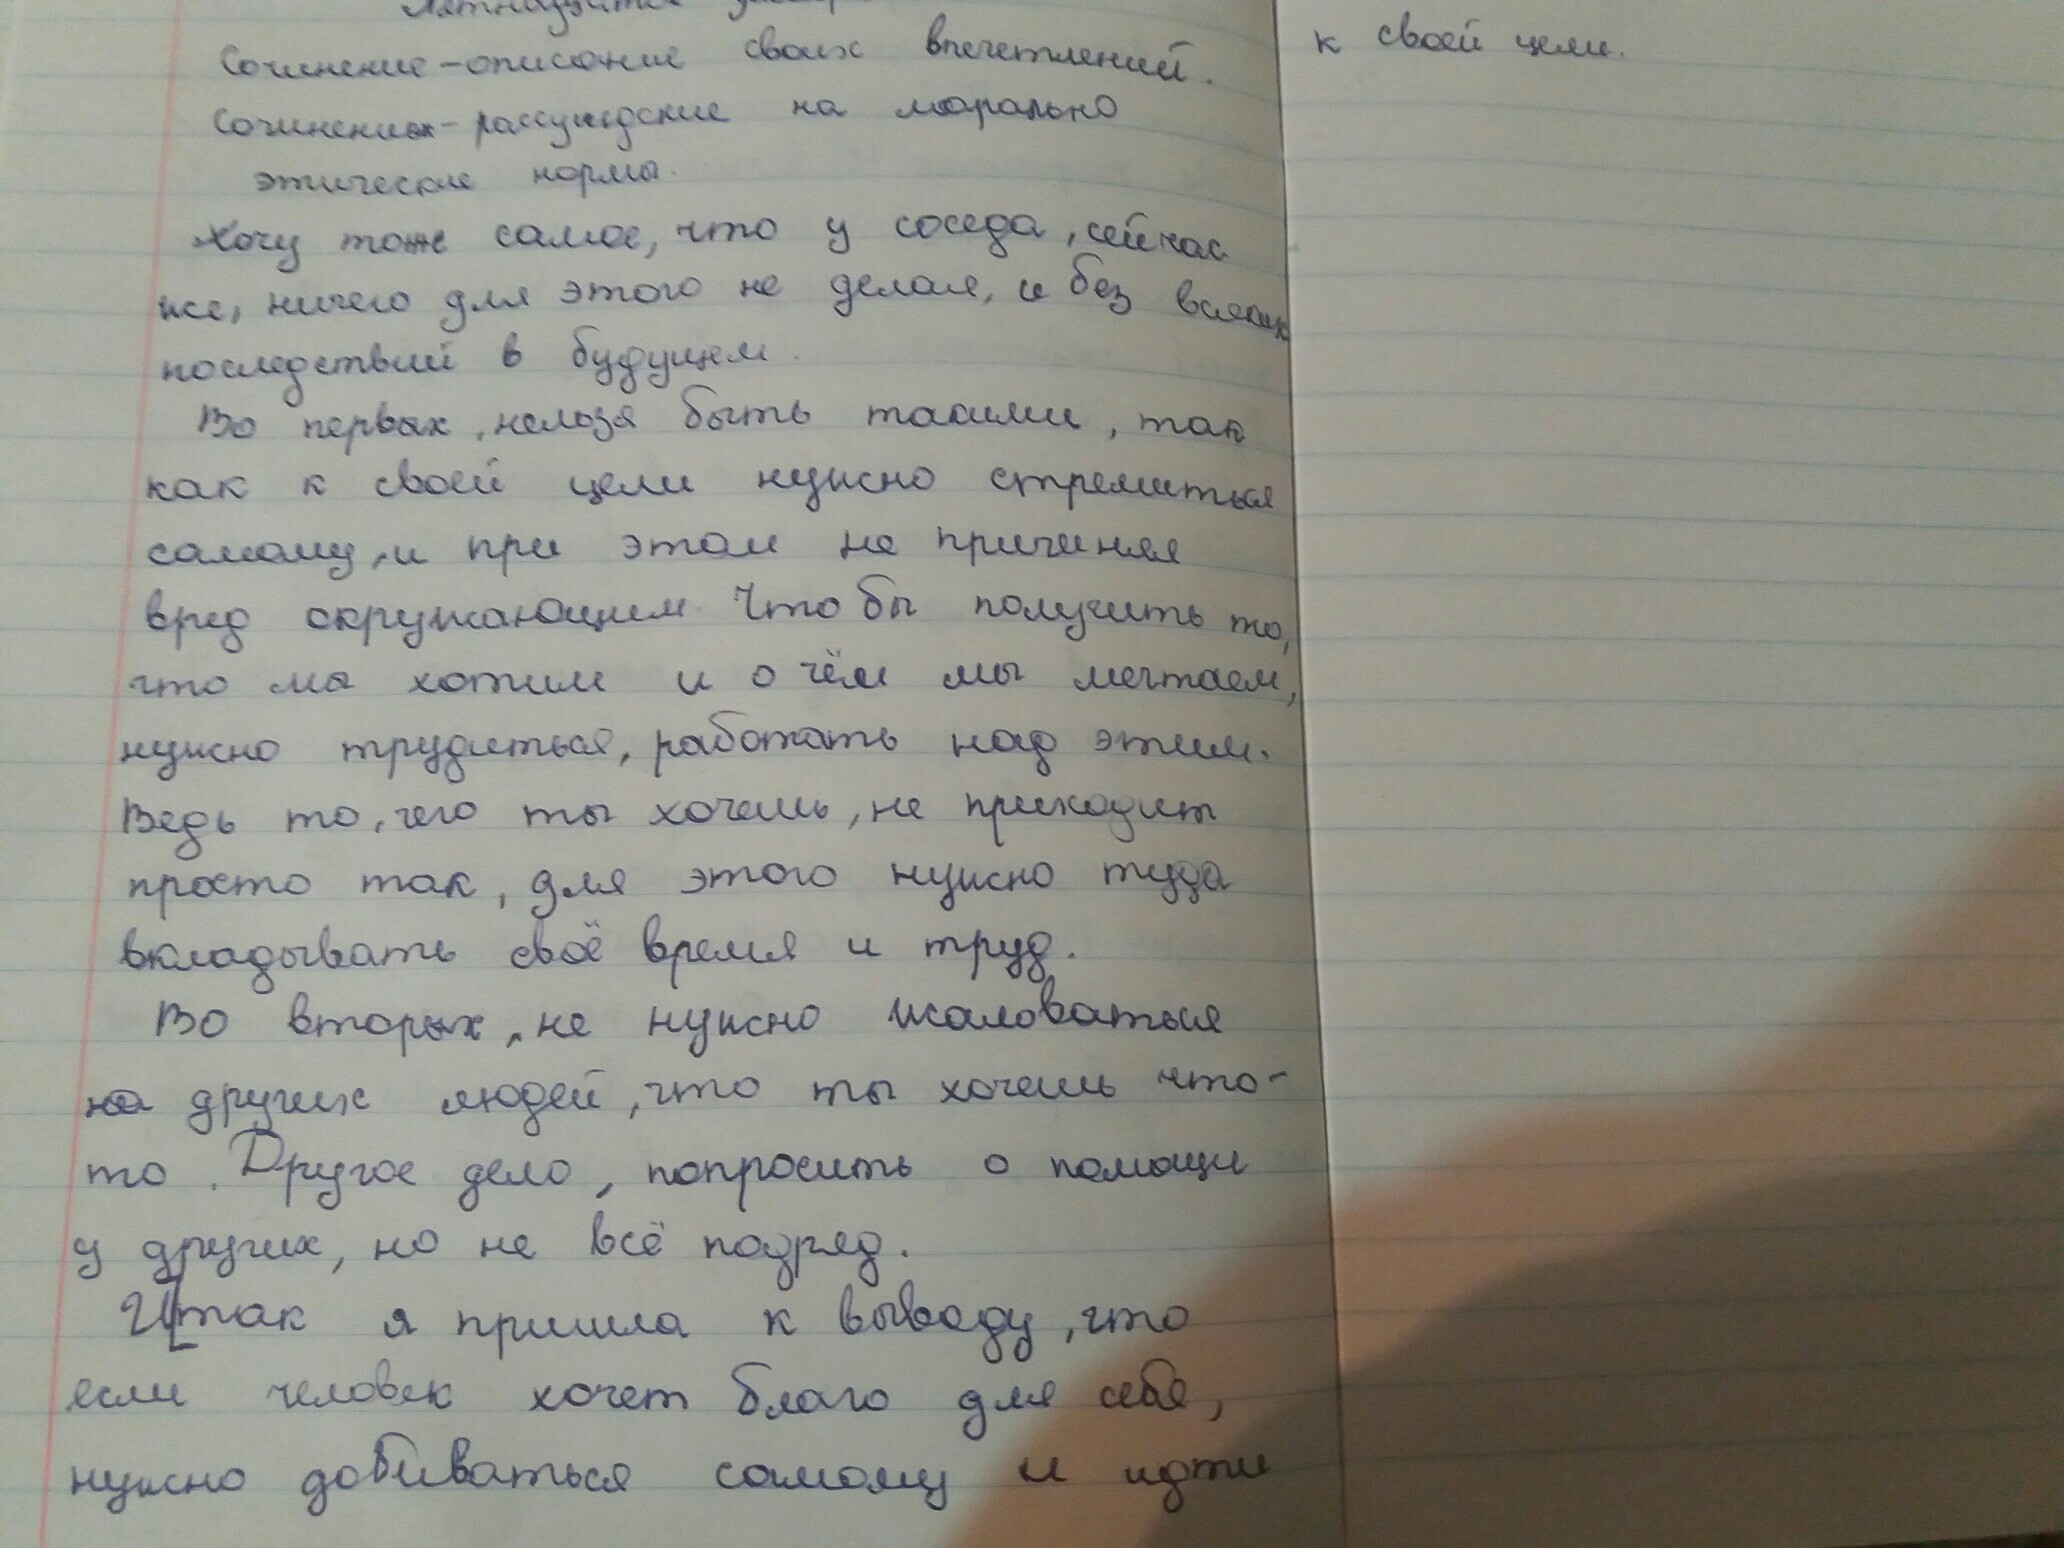 Сочинение-описание своих впечетлений.
Сочинение-рассуждение на морально
этические нормы.
Хочу тоже самое, что у соседа, сейчас
же, ничего для этого не делая, и без всяких
последствий в будущем.
Во первых, нельзя быть такими, так
как к своей цели нужно стремиться
самому, и при этом не причиняя
вред окружающим. Что бы получить то,
что мы хотим и о чём мы мечтаем,
нужно трудиться, работать над этим.
Ведь то, чего ты хочешь, не приходит
просто так, для этого нужно туда
вкладывать своё время и труд.
Во вторых, не нужно жаловаться
на других людей, что ты хочешь что-
то. Другое дело, попросить о помощи
у других, но не всё подряд.
Итак я пришла к выводу, что
если человек хочет благо для себя,
нужно добиваться самому и идти
к своей цели.